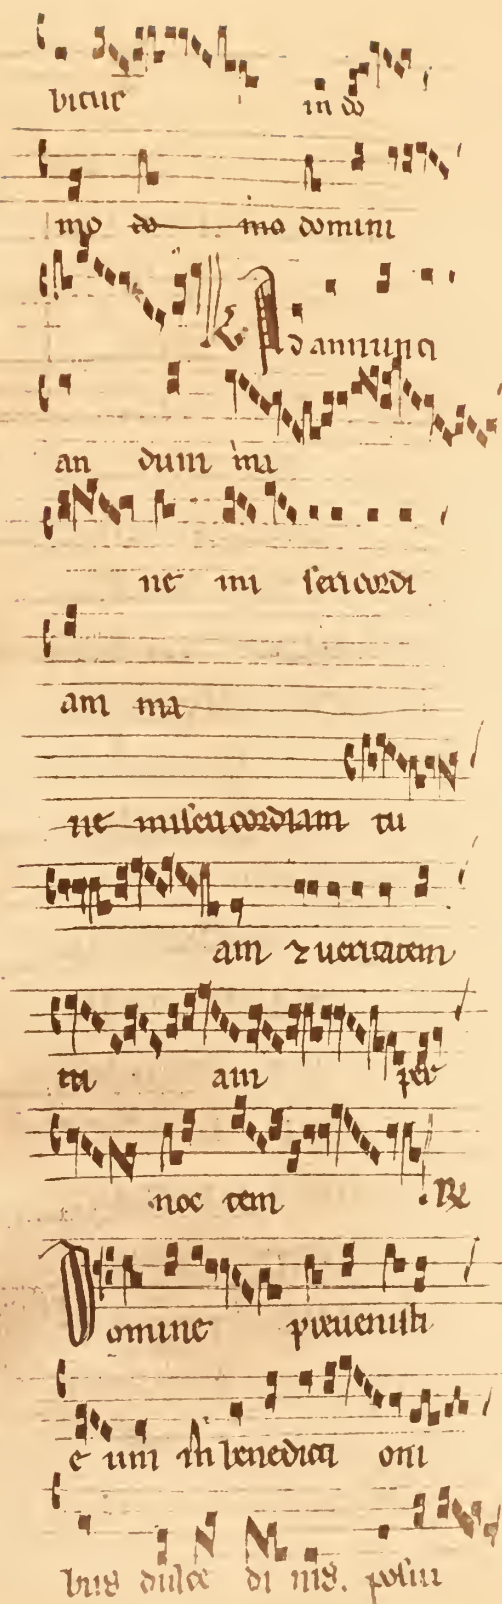 bitur in do
mo do mo domini
V. Ad annunci
an dum ma
ne mi sericordi
am ma
ne misericordiam tu
am ⁊ ueritatem
tu am per
noc tem R
Domine preuenisti
e um in benedicti oni
bus dulce di nis. posui